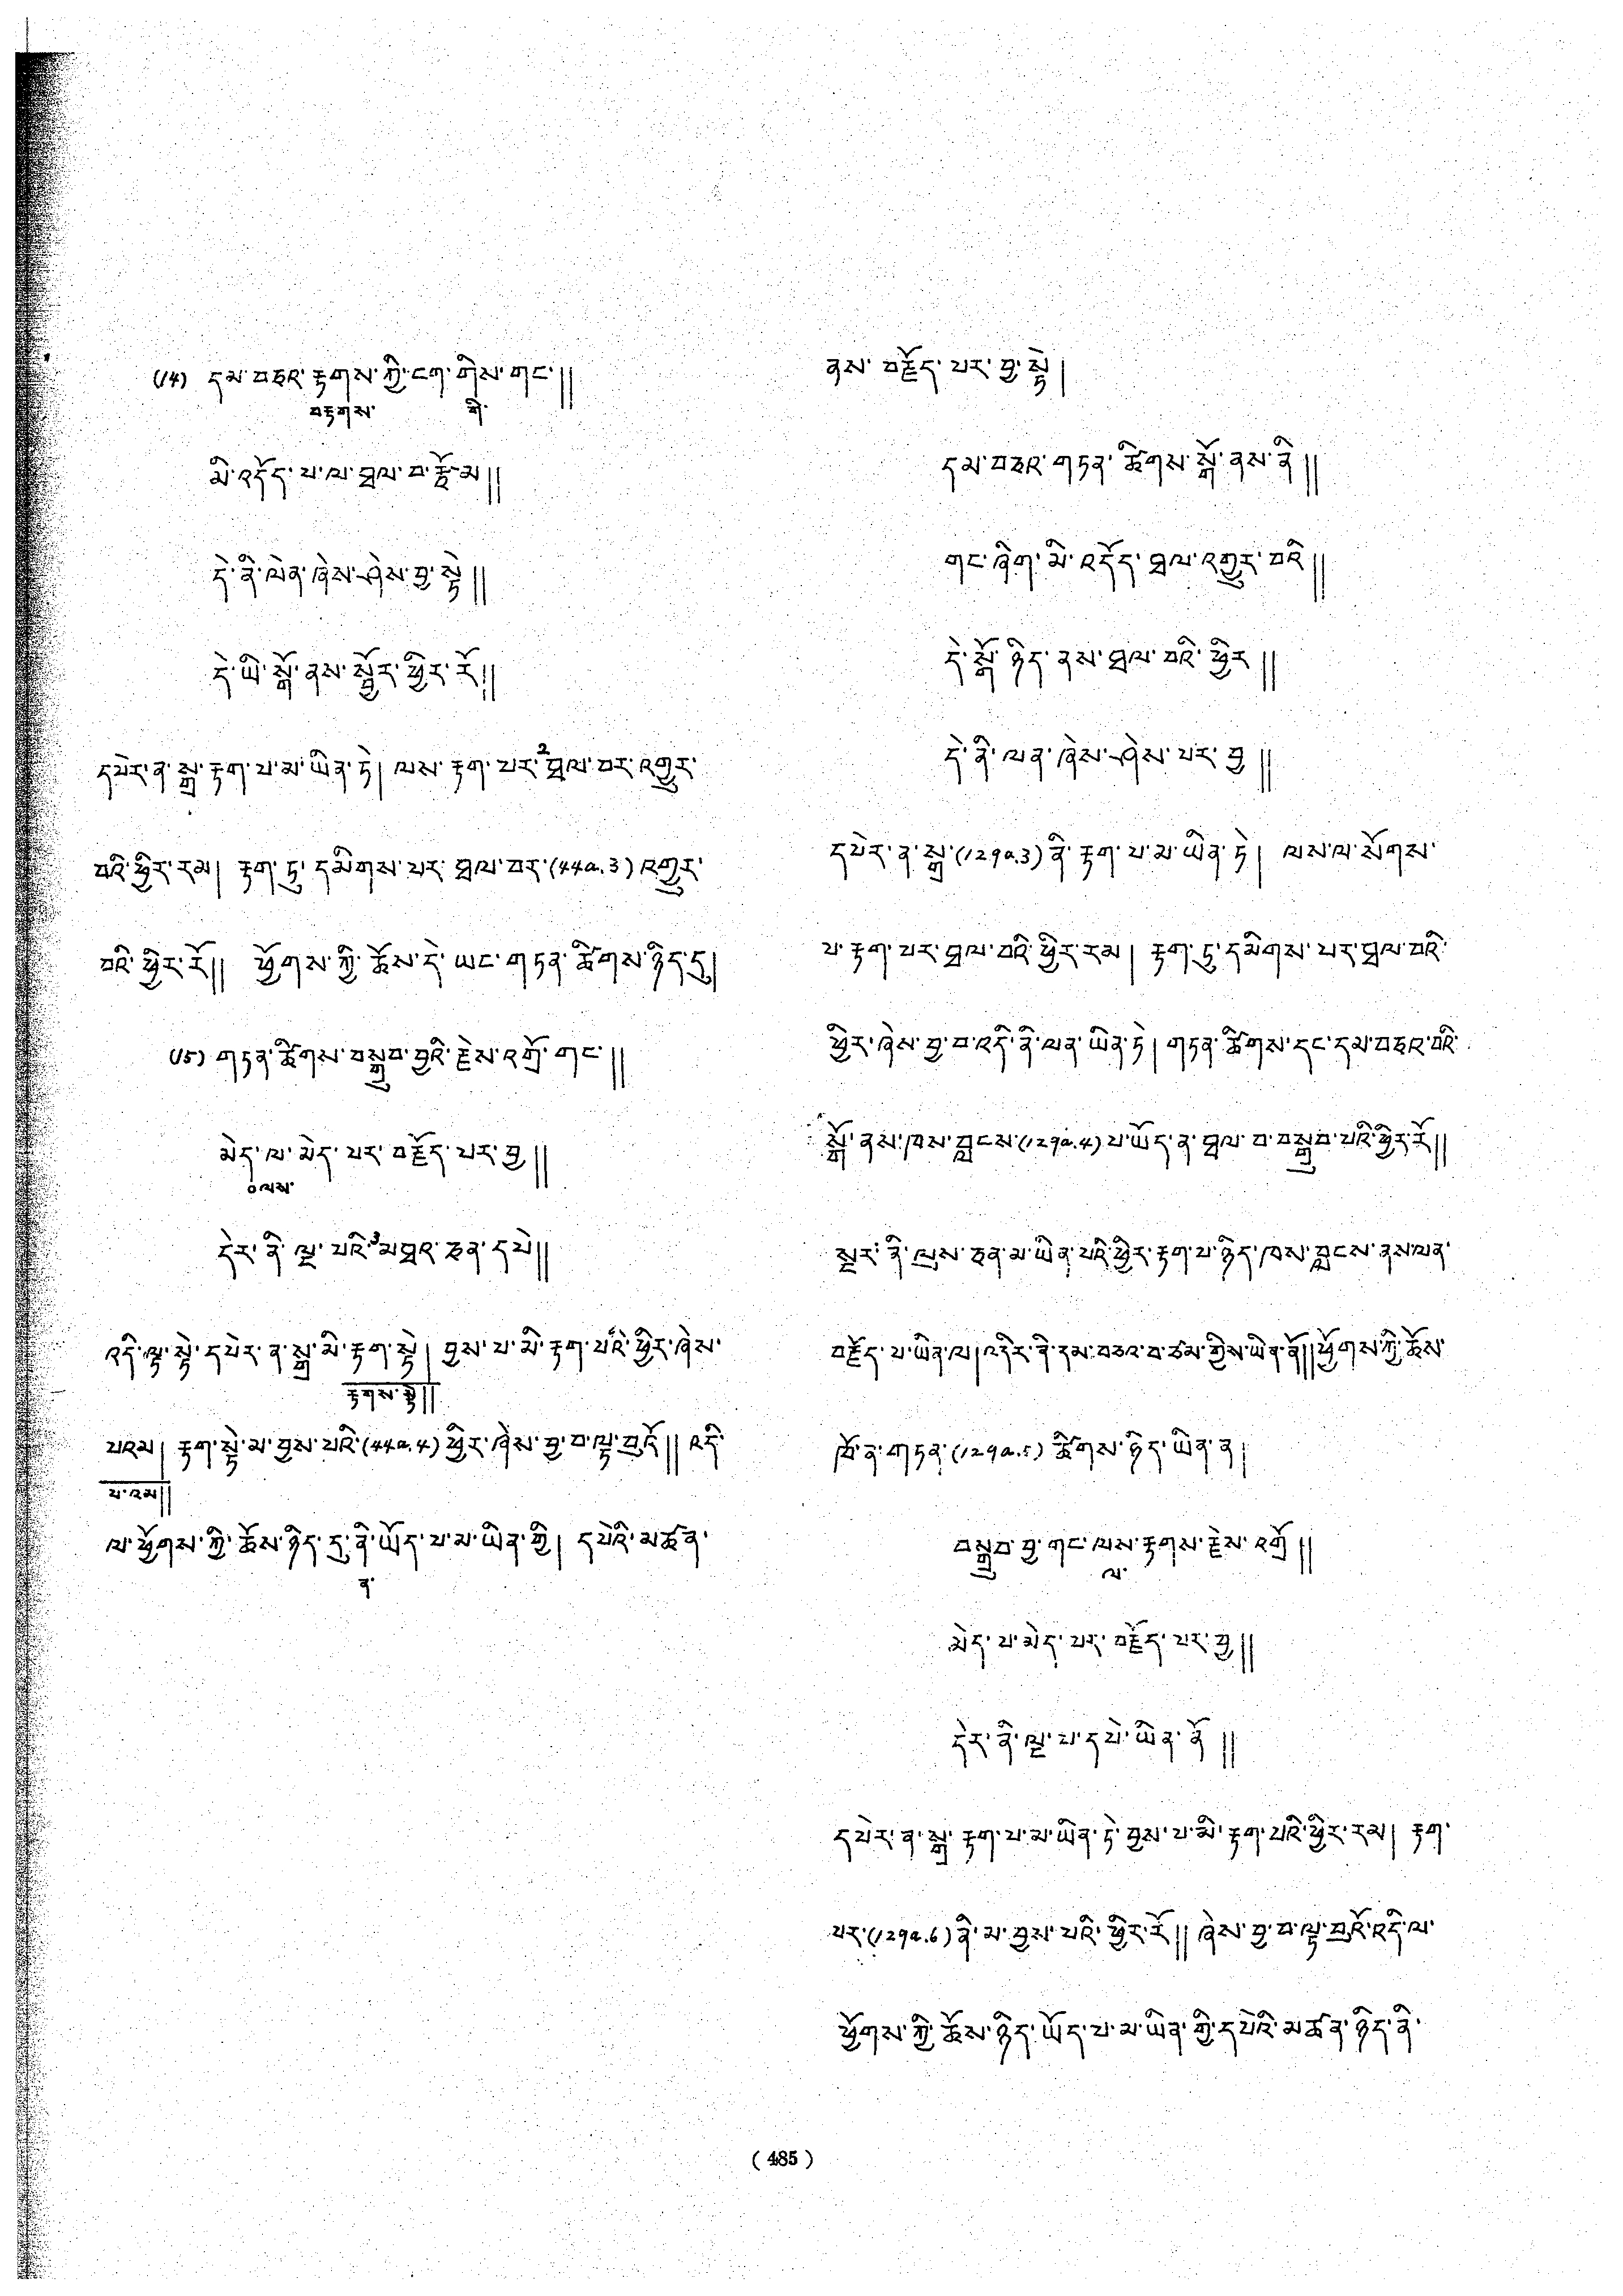 (14) དམ་བཅའ་རྟགས་ཀྱི་ངག་གིས་གང་།།
བརྟགས་ གི་
མི་འདོད་པ་ལ་ཐལ་བ་རྩོམ།།
དེ་ནི་ལེན་ཞེས་ཤེས་བྱ་སྟེ།།
དེ་ཡི་སྒོ་ནས་སྦྱོར་ཕྱིར་རོ།།
དཔེར་ན་སྒྲ་རྟག་པ་མ་ཡིན་ཏེ། ལས་རྟག་པར་2ཐལ་བར་འགྱུར་
བའི་ཕྱིར་རམ། རྟག་ཏུ་དམིགས་པར་ཐལ་བར་(44a.3)འགྱུར་
བའི་ཕྱིར་རོ།། ཕྱོགས་ཀྱི་ཆོས་དེ་ཡང་གཏན་ཚིགས་ཉིད་དུ།
(15) གཏན་ཚིགས་བསྒྲུབ་བྱའི་རྗེས་འགྲོ་གང་།།
མེད་ལ་མེད་པར་བརྗོད་པར་བྱ།།
༠ལས་
དེར་ནི་ལྔ་པའི་3མཐའ་ཅན་དཔེ།།
འདི་ལྟ་སྟེ་དཔེར་ན་སྒྲ་མི་རྟག་སྟེ། བྱས་པ་མི་རྟག་པའི་ཕྱིར་ཞེས་
རྟགས་སྟེ།།
པའམ། རྟག་སྟེ་མ་བྱས་པའི་(44a.4)ཕྱིར་ཞེས་བྱ་བ་ལྟ་བུའོ།། འདི་
པ་འམ།།
ལ་ཕྱོགས་ཀྱི་ཆོས་ཉིད་དུ་ནི་ཡོད་པ་མ་ཡིན་ཀྱི། དཔེའི་མཚན་
ན་
ནས་བརྗོད་པར་བྱ་སྟེ།
དམ་བཅའ་གཏན་ཚིགས་སྒོ་ནས་ནི།།
གང་ཞིག་མི་འདོད་ཐལ་འགྱུར་བའི།།
དེ་སྒོ་ཉིད་ནས་ཐལ་བའི་ཕྱིར།།
དེ་ནི་ལན་ཞེས་ཤེས་པར་བྱ།།
དཔེར་ན་སྒྲ་(129a.3)ནི་རྟག་པ་མ་ཡིན་ཏེ། ལས་ལ་སོགས་
པ་རྟག་པར་ཐལ་བའི་ཕྱིར་རམ། རྟག་ཏུ་དམིགས་པར་ཐལ་བའི་
ཕྱིར་ཞེས་བྱ་བ་འདི་ནི་ལན་ཡིན་ཏེ། གཏན་ཚིགས་དང་དམ་བཅའ་བའི་
སྒོ་ནས་ཁས་བླངས་(129a.4)པ་ཡོད་ན་ཐལ་བ་བསྒྲུབ་པའི་ཕྱིར་རོ།།
སྔར་ནི་ལུས་ཅན་མ་ཡིན་པའི་ཕྱིར་རྟག་པ་ཉིད་ཁས་བླངས་ནས་ལན་
བརྗོད་པ་ཡིན་ལ།འདིར་ནི་དམ་བཅའ་བ་ཙམ་གྱིས་ཡིན་ནོ།།ཕྱོགས་ཀྱི་ཆོས་
ཁོ་ན་གཏན་(129a.5)ཚིགས་ཉིད་ཡིན་ན།
བསྒྲུབ་བྱ་གང་ལས་རྟགས་རྗེས་འགྲོ།།
ལ་
མེད་པ་མེད་པར་བརྗོད་པར་བྱ།།
དེར་ནི་ལྔ་པ་དཔེ་ཡིན་ནོ།།
དཔེར་ན་སྒྲ་རྟག་པ་མ་ཡིན་ཏེ་བྱས་པ་མི་རྟག་པའི་ཕྱིར་རམ། རྟག་
པར་(129a.6)ནི་མ་བྱས་པའི་ཕྱིར་རོ།། ཞེས་བྱ་བ་ལྟ་བུའོ་འདི་ལ་
ཕྱོགས་ཀྱི་ཆོས་ཉིད་ཡོད་པ་མ་ཡིན་གྱི་དཔེའི་མཚན་ཉིད་ནི་
( 485 )